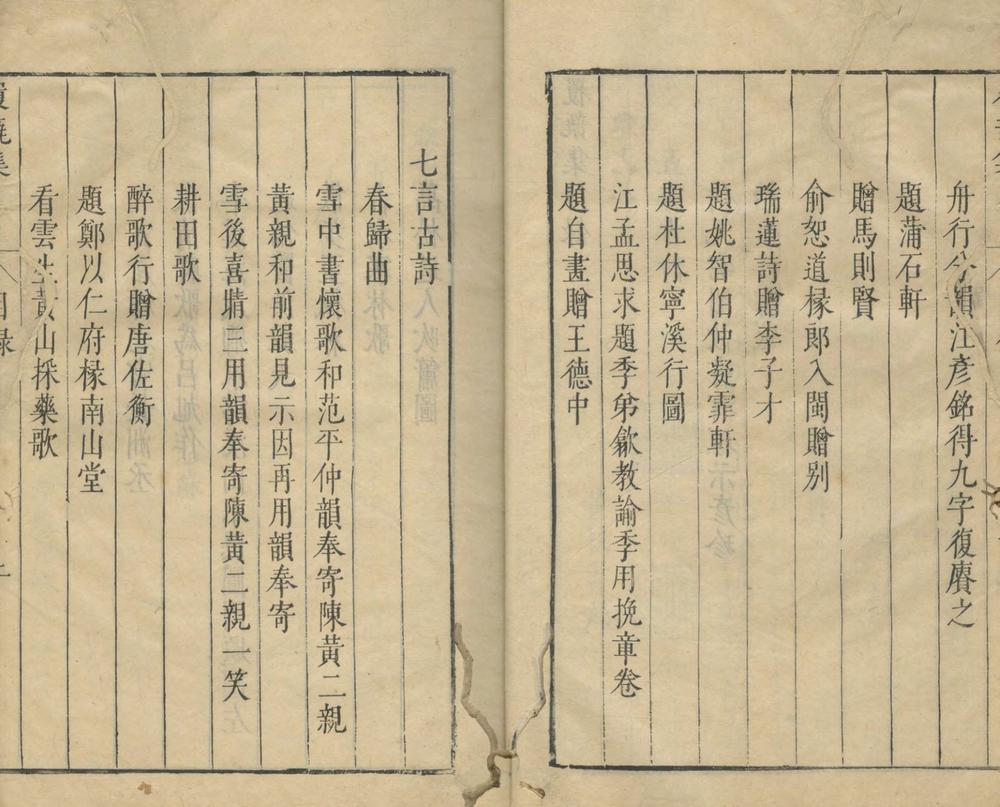 舟行分韻江彥銘得九字復賡之
題蒲石軒
贈馬則賢
俞恕道椽郎入閩贈别
瑞蓮詩贈李子才
題姚智伯仲凝霏軒
題杜休寧溪行圖
江孟思求題季弟歙教諭季用挽章卷
題自畫贈王德中
七言古詩
春歸曲
雪中書懷歌和范平仲韻奉寄陳黃二親
黃親和前韻見示因再用韻奉寄
雪後喜晴三用韻奉寄陳黃二親一笑
耕田歌
醉歌行贈唐佐衡
題鄭以仁府椽南山堂
看雲生黃山採藥歌
目錄